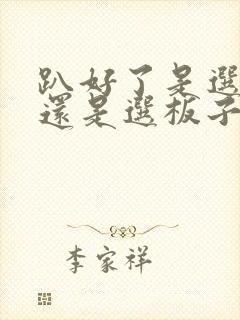 趴好了是選
還是選板子
李家祥